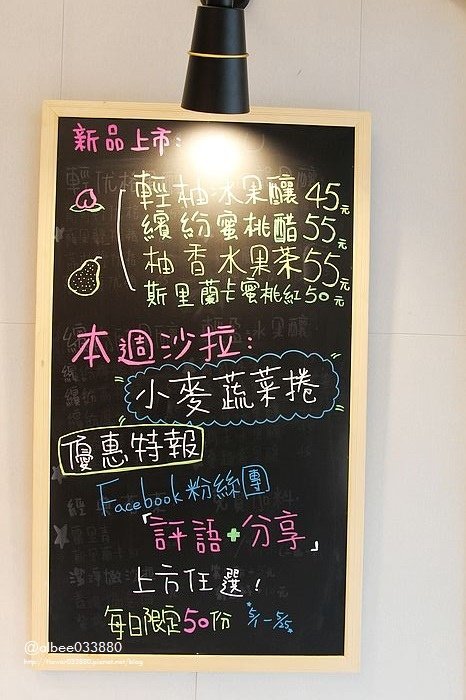 新品上市:
輕柚冰果釀 45元
繽紛蜜桃醋 55元
柚香水果茶 55元
斯里蘭卡蜜桃紅 50元
本週沙拉:
小麥蔬菜捲
優惠特報
Facebook粉絲團
「評語+分享」
上方任選!
每日限定50份 5/1-5/25
@albee033880